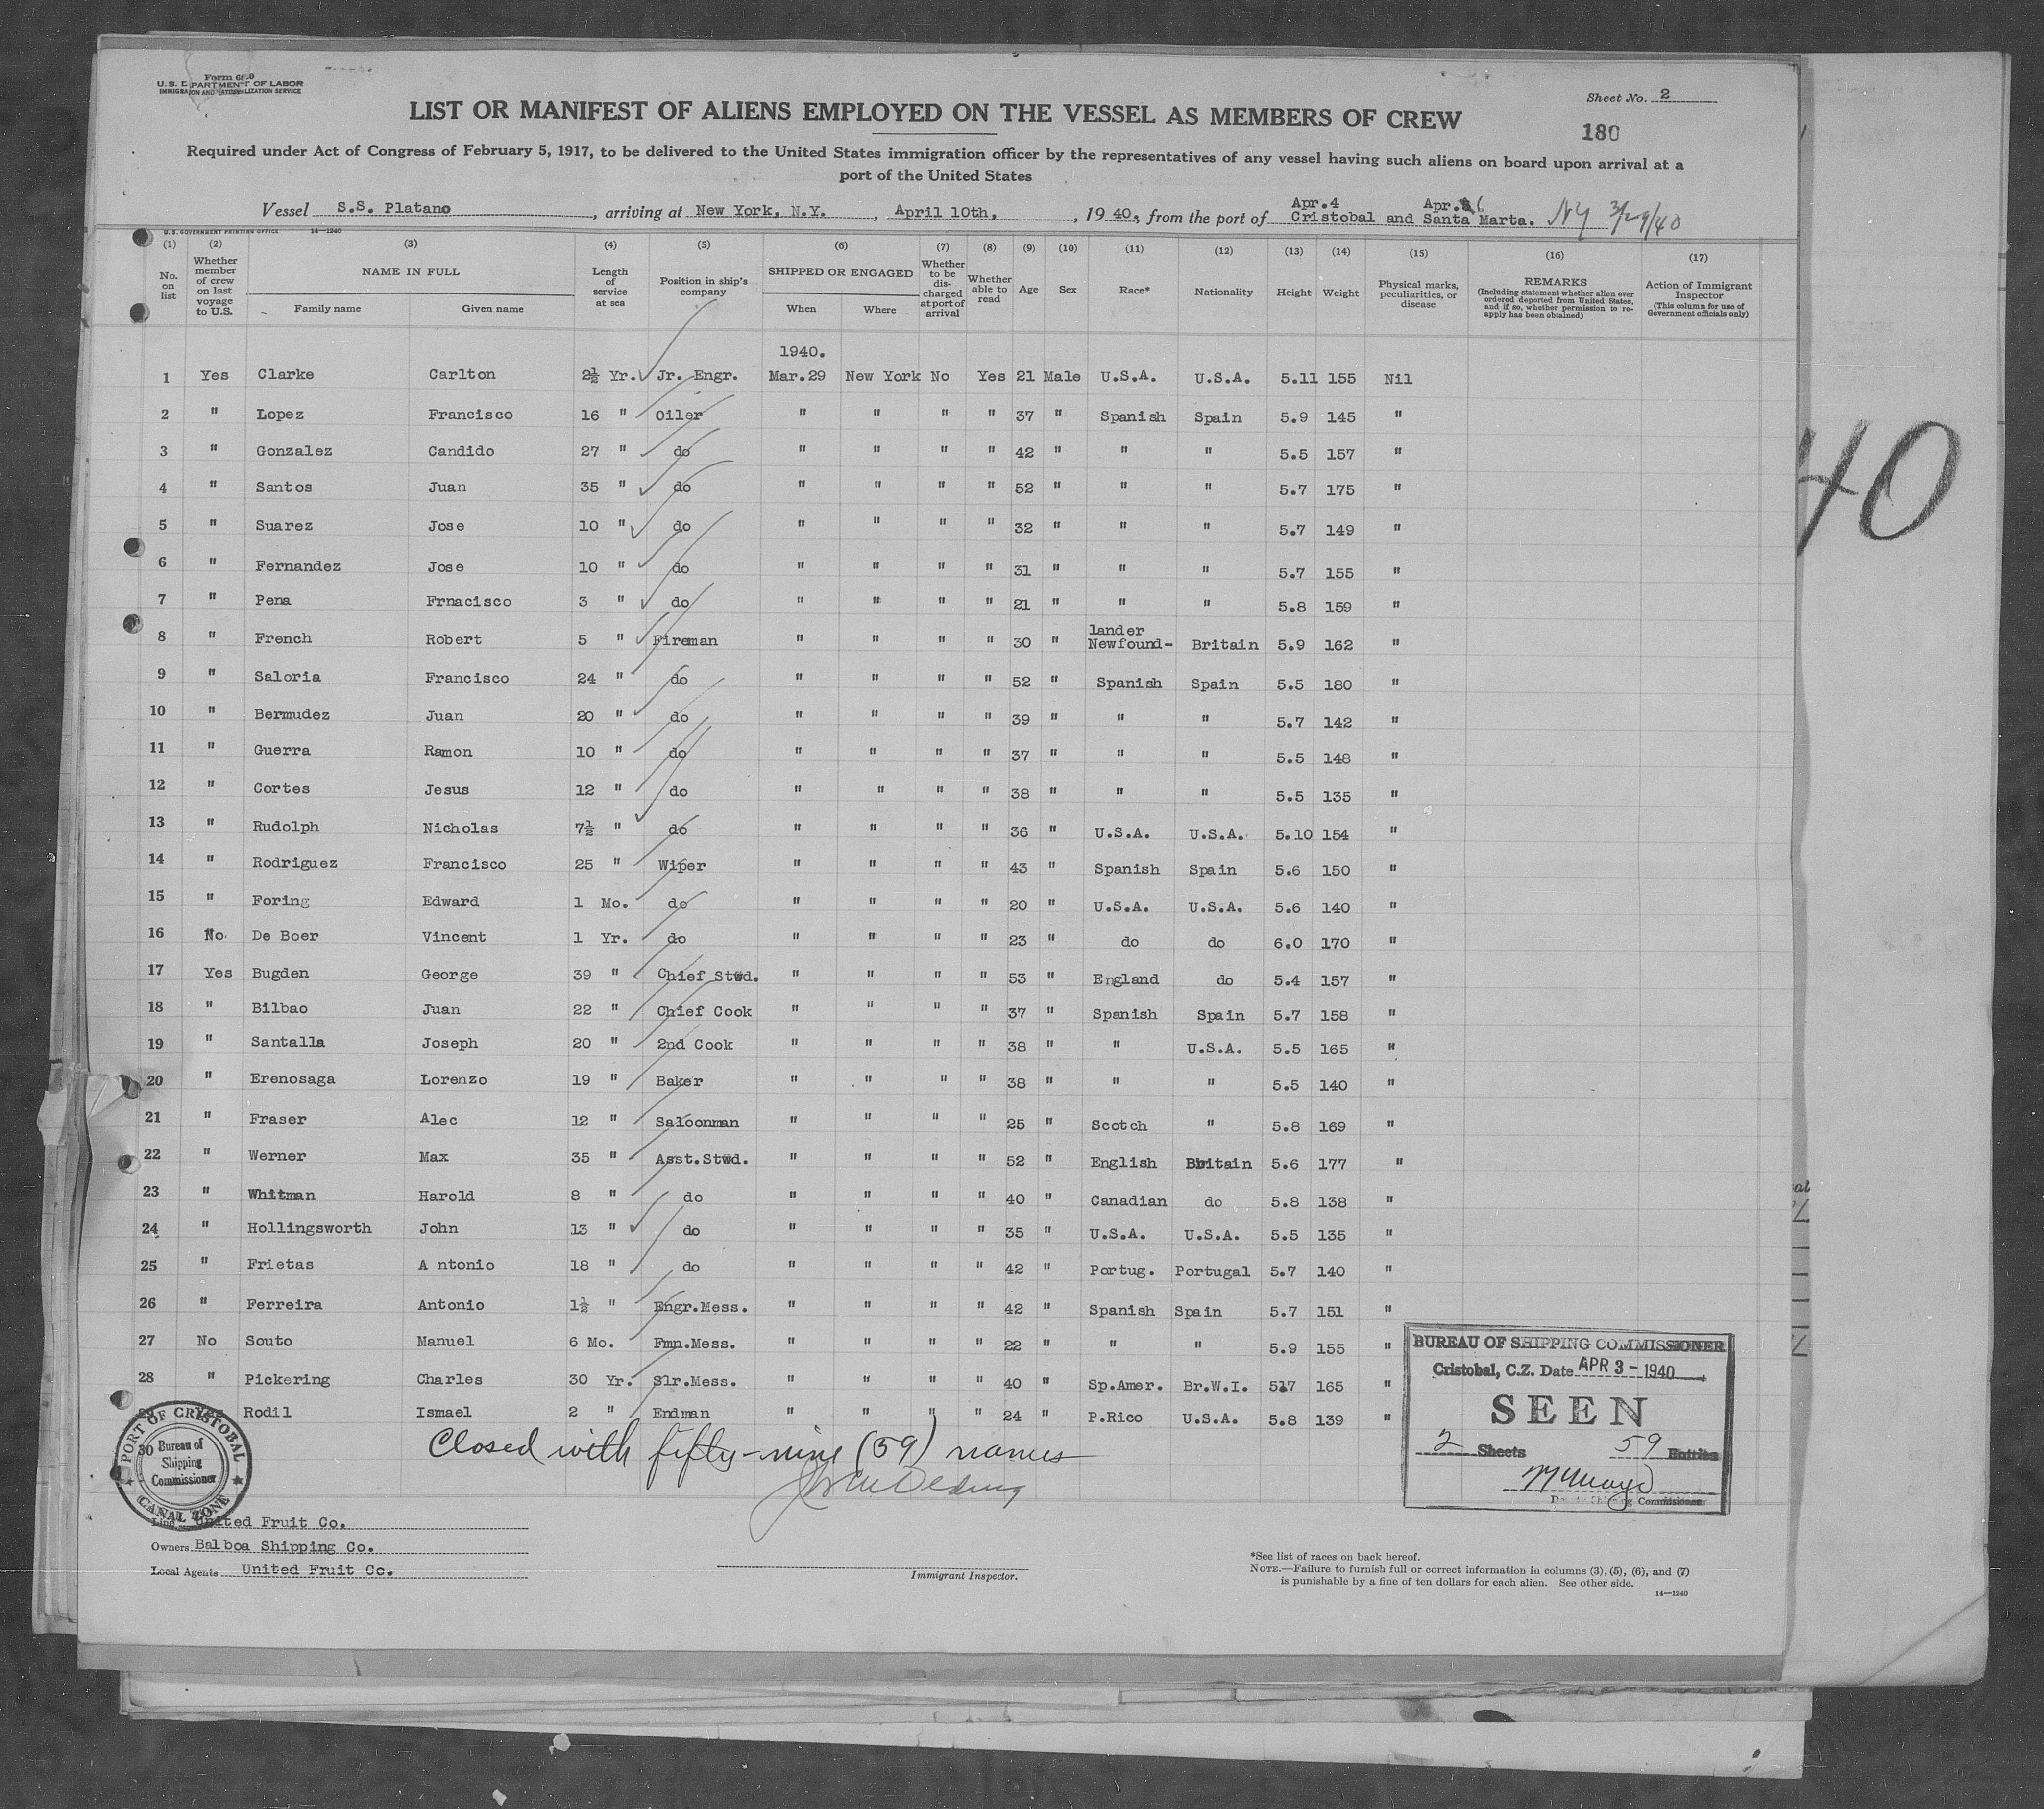 Form 680
U.S. DEPARTMENT OF LABOR
IMMIGRATION AND NATURALIZATION SERVICE
Sheet No. 2
LIST OR MANIFEST OF ALIENS EMPLOYED ON THE VESSEL AS MEMBERS OF CREW
180
Required under Act of Congress of February 5, 1917, to be delivered to the United States immigration officer by the representatives of any vessel having such aliens on board upon arrival at a
port of the United States
Apr.4 Apr. 6
Vessel S.S. Platano, arriving at New York, N.Y., April 10th, , 1940, from the port of Cristobal and Santa Marta. NY 3/29/40
U.S. GOVERNMENT PRINTING OFFICE 14—1240
(1) (2) (3) (4) (5) (6) (7) (8) (9) (10) (11) (12) (13) (14) (15) (16) (17)
No. on list
Whether member of crew on last voyage to U.S.
NAME IN FULL
Family name Given name
Length of service at sea
Position in ship's company
SHIPPED OR ENGAGED
When Where
Whether to be discharged at port of arrival
Whether able to read
Age
Sex
Race*
Nationality
Height
Weight
Physical marks, peculiarities, or disease
REMARKS
(Including statement whether alien ever ordered deported from United States, and if so, whether permission to re-apply has been obtained)
Action of Immigrant Inspector
(This column for use of Government officials only)
1940.
1 Yes Clarke Carlton 2½ Yr. Jr. Engr. Mar.29 New York No Yes 21 Male U.S.A. U.S.A. 5.11 155 Nil
2 " Lopez Francisco 16 " Oiler " " " " 37 " Spanish Spain 5.9 145 "
3 " Gonzalez Candido 27 " do " " " " 42 " " " 5.5 157 "
4 " Santos Juan 35 " do " " " " 52 " " " 5.7 175 "
5 " Suarez Jose 10 " do " " " " 32 " " " 5.7 149 "
6 " Fernandez Jose 10 " do " " " " 31 " " " 5.7 155 "
7 " Pena Frnacisco 3 " do " " " " 21 " " " 5.8 159 "
8 " French Robert 5 " Fireman " " " " 30 " lander Newfound- Britain 5.9 162 "
9 " Saloria Francisco 24 " do " " " " 52 " Spanish Spain 5.5 180 "
10 " Bermudez Juan 20 " do " " " " 39 " " " 5.7 142 "
11 " Guerra Ramon 10 " do " " " " 37 " " " 5.5 148 "
12 " Cortes Jesus 12 " do " " " " 38 " " " 5.5 135 "
13 " Rudolph Nicholas 7½ " do " " " " 36 " U.S.A. U.S.A. 5.10 154 "
14 " Rodriguez Francisco 25 " Wiper " " " " 43 " Spanish Spain 5.6 150 "
15 " Foring Edward 1 Mo. do " " " " 20 " U.S.A. U.S.A. 5.6 140 "
16 No De Boer Vincent 1 Yr. do " " " " 23 " do do 6.0 170 "
17 Yes Bugden George 39 " Chief Stwd. " " " " 53 " England do 5.4 157 "
18 " Bilbao Juan 22 " Chief Cook " " " " 37 " Spanish Spain 5.7 158 "
19 " Santalla Joseph 20 " 2nd Cook " " " " 38 " " U.S.A. 5.5 165 "
20 " Erenosaga Lorenzo 19 " Baker " " " " 38 " " " 5.5 140 "
21 " Fraser Alec 12 " Saloonman " " " " 25 " Scotch " 5.8 169 "
22 " Werner Max 35 " Asst.Stwd. " " " " 52 " English Britain 5.6 177 "
23 " Whitman Harold 8 " do " " " " 40 " Canadian do 5.8 138 "
24 " Hollingsworth John 13 " do " " " " 35 " U.S.A. U.S.A. 5.5 135 "
25 " Frietas A ntonio 18 " do " " " " 42 " Portug. Portugal 5.7 140 "
26 " Ferreira Antonio 1½ " Engr.Mess. " " " " 42 " Spanish Spain 5.7 151 "
27 No Souto Manuel 6 Mo. Fmn.Mess. " " " " 22 " " " 5.9 155 "
28 " Pickering Charles 30 Yr. Slr.Mess. " " " " 40 " Sp.Amer. Br.W.I. 5.7 165 "
29 Yes Rodil Ismael 2 " Endman " " " " 24 " P.Rico U.S.A. 5.8 139 "
30
Closed with fifty-nine (59) names
PORT OF CRISTOBAL
Bureau of
Shipping
Commissioner
CANAL ZONE
BUREAU OF SHIPPING COMMISSIONER
Cristobal, C.Z. Date APR 3 - 1940
SEEN
2 Sheets 59 Entries
Deputy Shipping Commissioner
Line United Fruit Co.
Owners Balboa Shipping Co.
Local Agents United Fruit Co.
Immigrant Inspector.
*See list of races on back hereof.
NOTE.—Failure to furnish full or correct information in columns (3), (5), (6), and (7)
is punishable by a fine of ten dollars for each alien. See other side.
14—1240
40